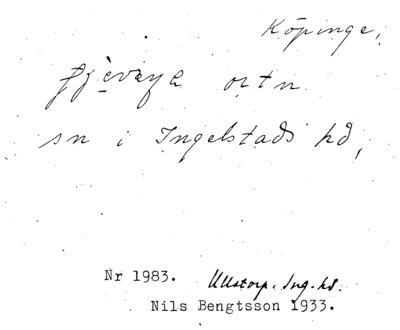 Köpinge,
ortn
sn i Ingelstads hd,
Nr 1983. Ullstorp. Ing. hd.
Nils Bengtsson 1933.